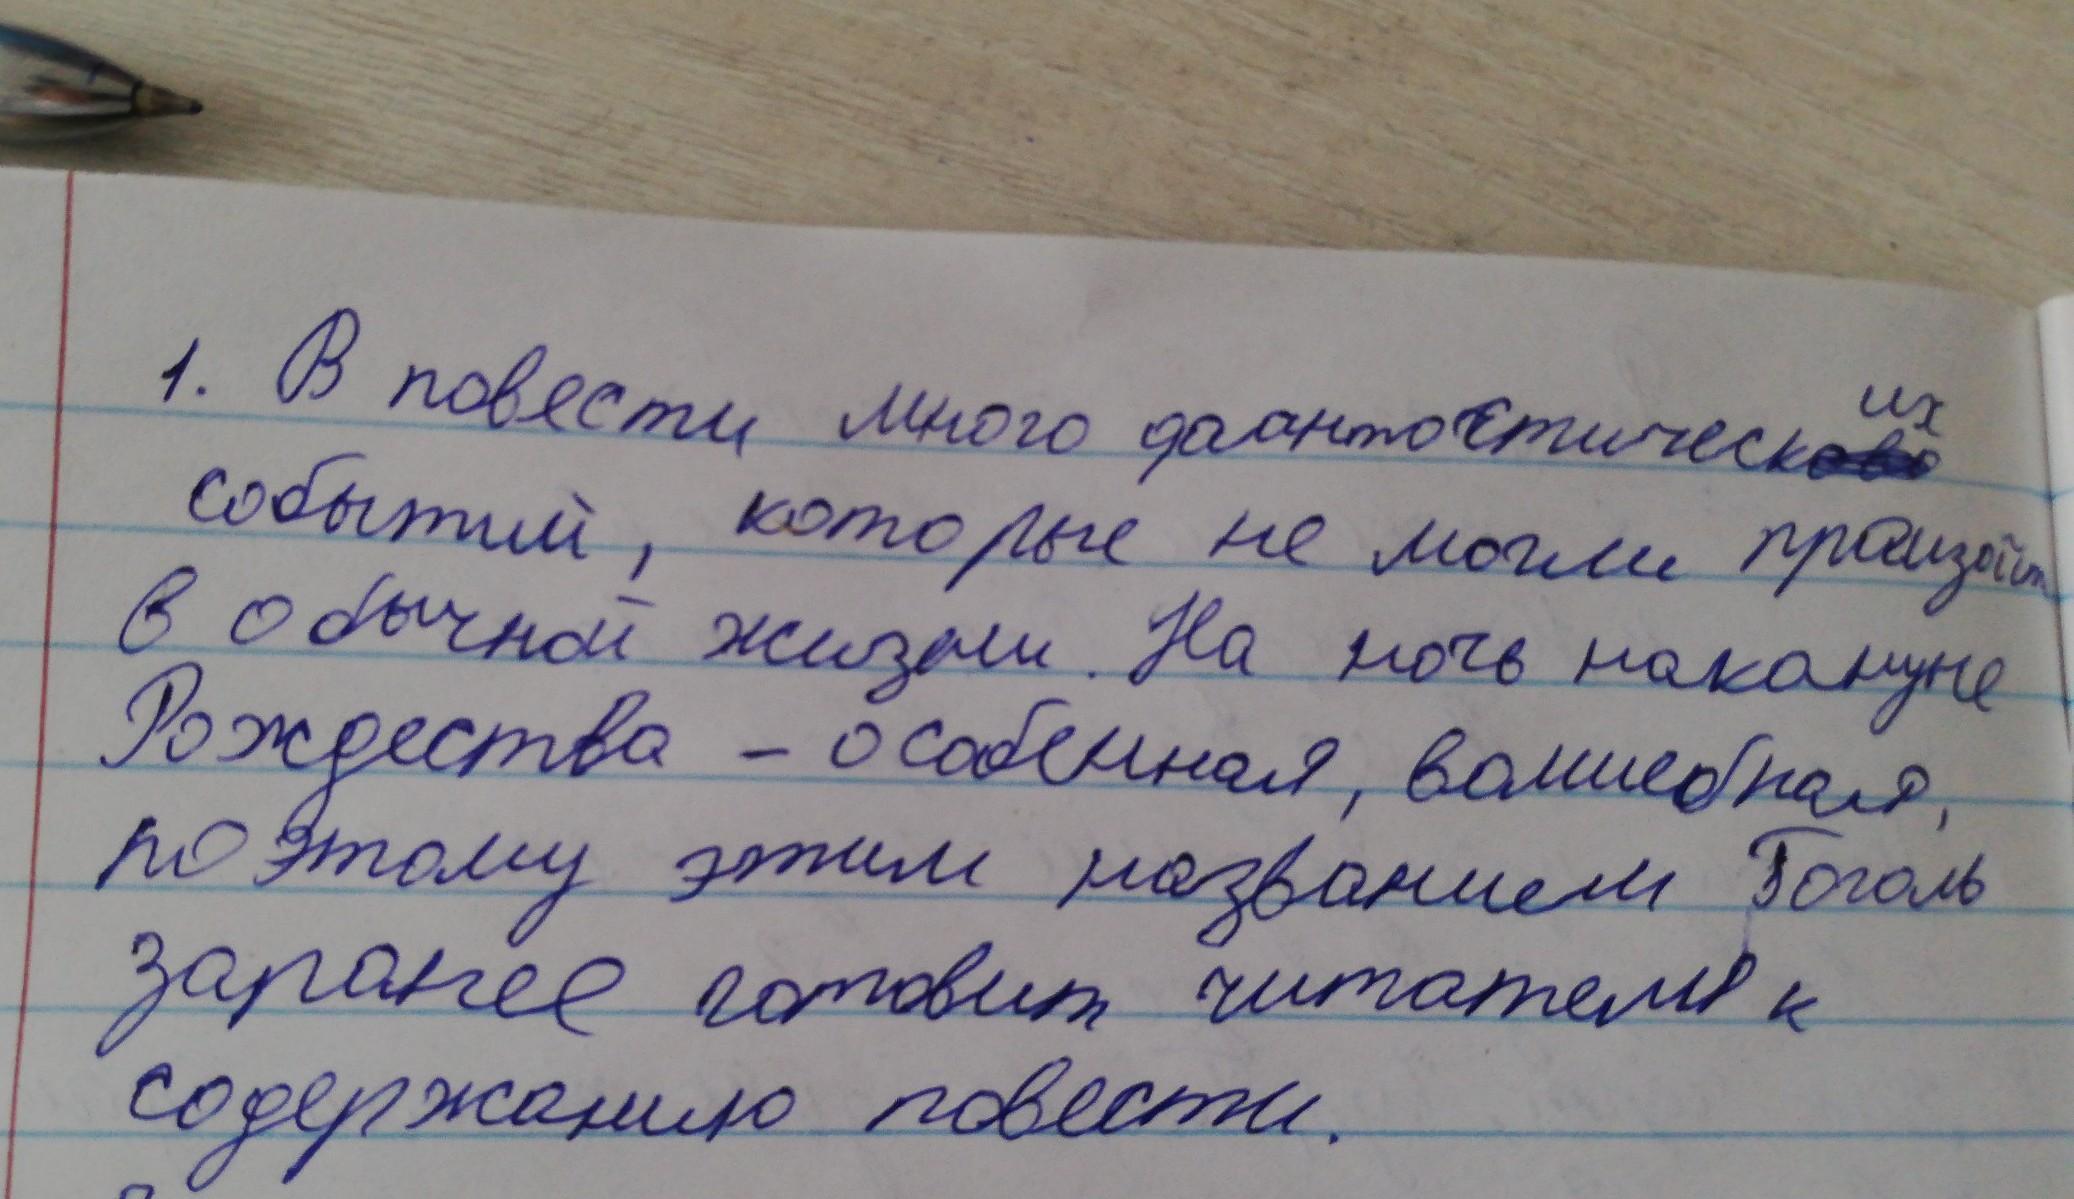 1. В повести много фантастических
событий, которые не могли произойти
в обычной жизни. На ночь накануне
Рождества - особенная, волшебная,
поэтому этим названием Гоголь
заранее готовит читателя к
содержанию повести.